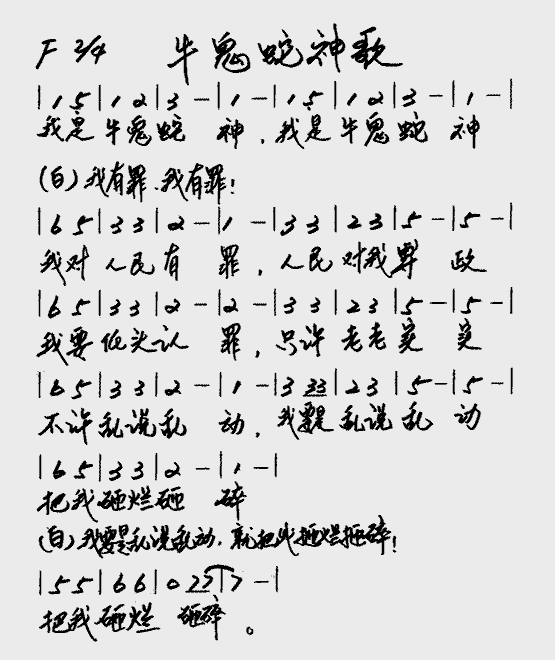 F 2/4 牛鬼蛇神歌
|1 5|1 2|3 -|1 -|1 5|1 2|3 -|1 -|
我是牛鬼蛇 神,我是牛鬼蛇 神
(白)我有罪、我有罪!
|6 5|3 3|2 -|1 -|3 3|2 3|5 -|5 -|
我对人民有 罪,人民对我专 政
|6 5|3 3|2 -|2 -|3 3|2 3|5 -|5 -|
我要低头认 罪,只许老老实 实
|6 5|3 3|2 -|1 -|3 33|2 3|5 -|5 -|
不许乱说乱 动,我要是乱说乱 动
|6 5|3 3|2 -|1 -|
把我砸烂砸 碎
(白)我要是乱说乱动,就把我砸烂砸碎!
|5 5|6 6|0 27|7 -|
把我砸烂 砸碎。